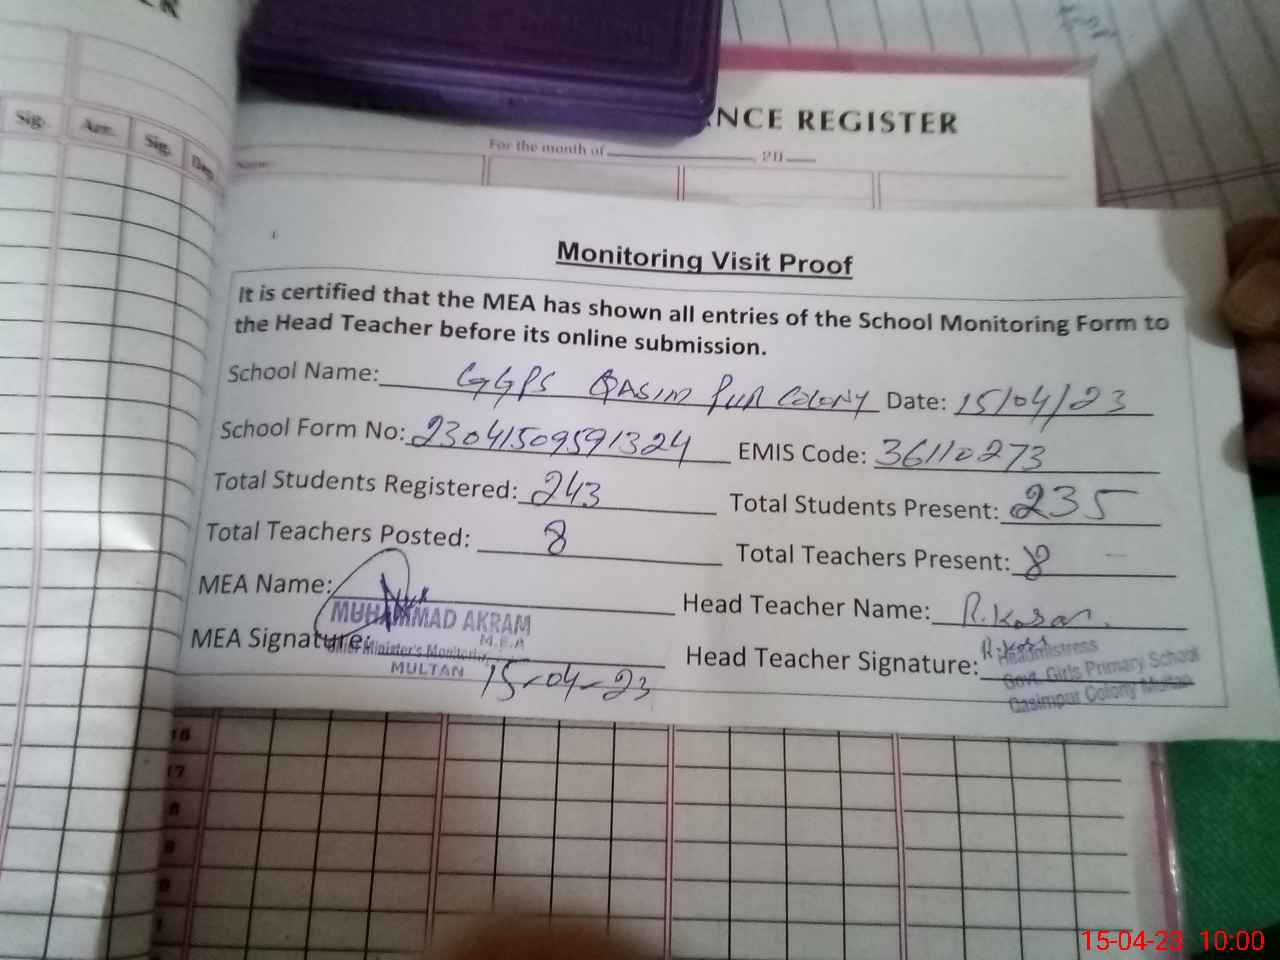 Sig.
Arr.
Sig.
NCE REGISTER
For the month of 20
Name
Monitoring Visit Proof
It is certified that the MEA has shown all entries of the School Monitoring Form to
the Head Teacher before its online submission.
School Name: GGPS QASIM PUR COLONY Date: 15/04/23
School Form No: 23041509591324 EMIS Code: 36110273
Total Students Registered: 243 Total Students Present: 235
Total Teachers Posted: 8 Total Teachers Present: 8
MEA Name: Head Teacher Name: R.Kosar
MUHAMMAD AKRAM
M.E.A
MEA Signature: Head Teacher Signature: R.Kosar
Chief Minister's Monitoring
MULTAN
15-04-23
Headmistress
Govt. Girls Primary School
Qasimpur Colony Multan
16
17
15-04-23 10:00